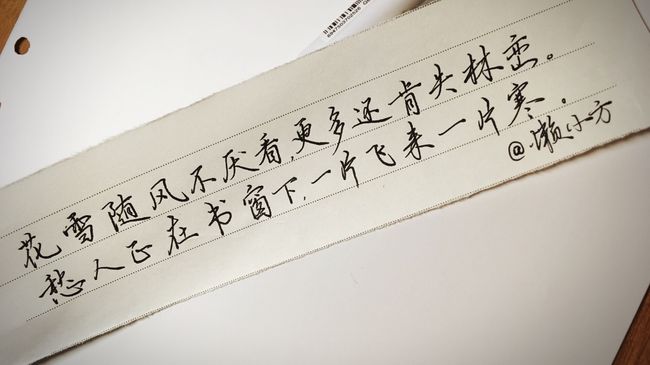 花雪随风不厌看,更多还肯失林峦。
愁人正在书窗下,一片飞来一片寒。
@懒小方